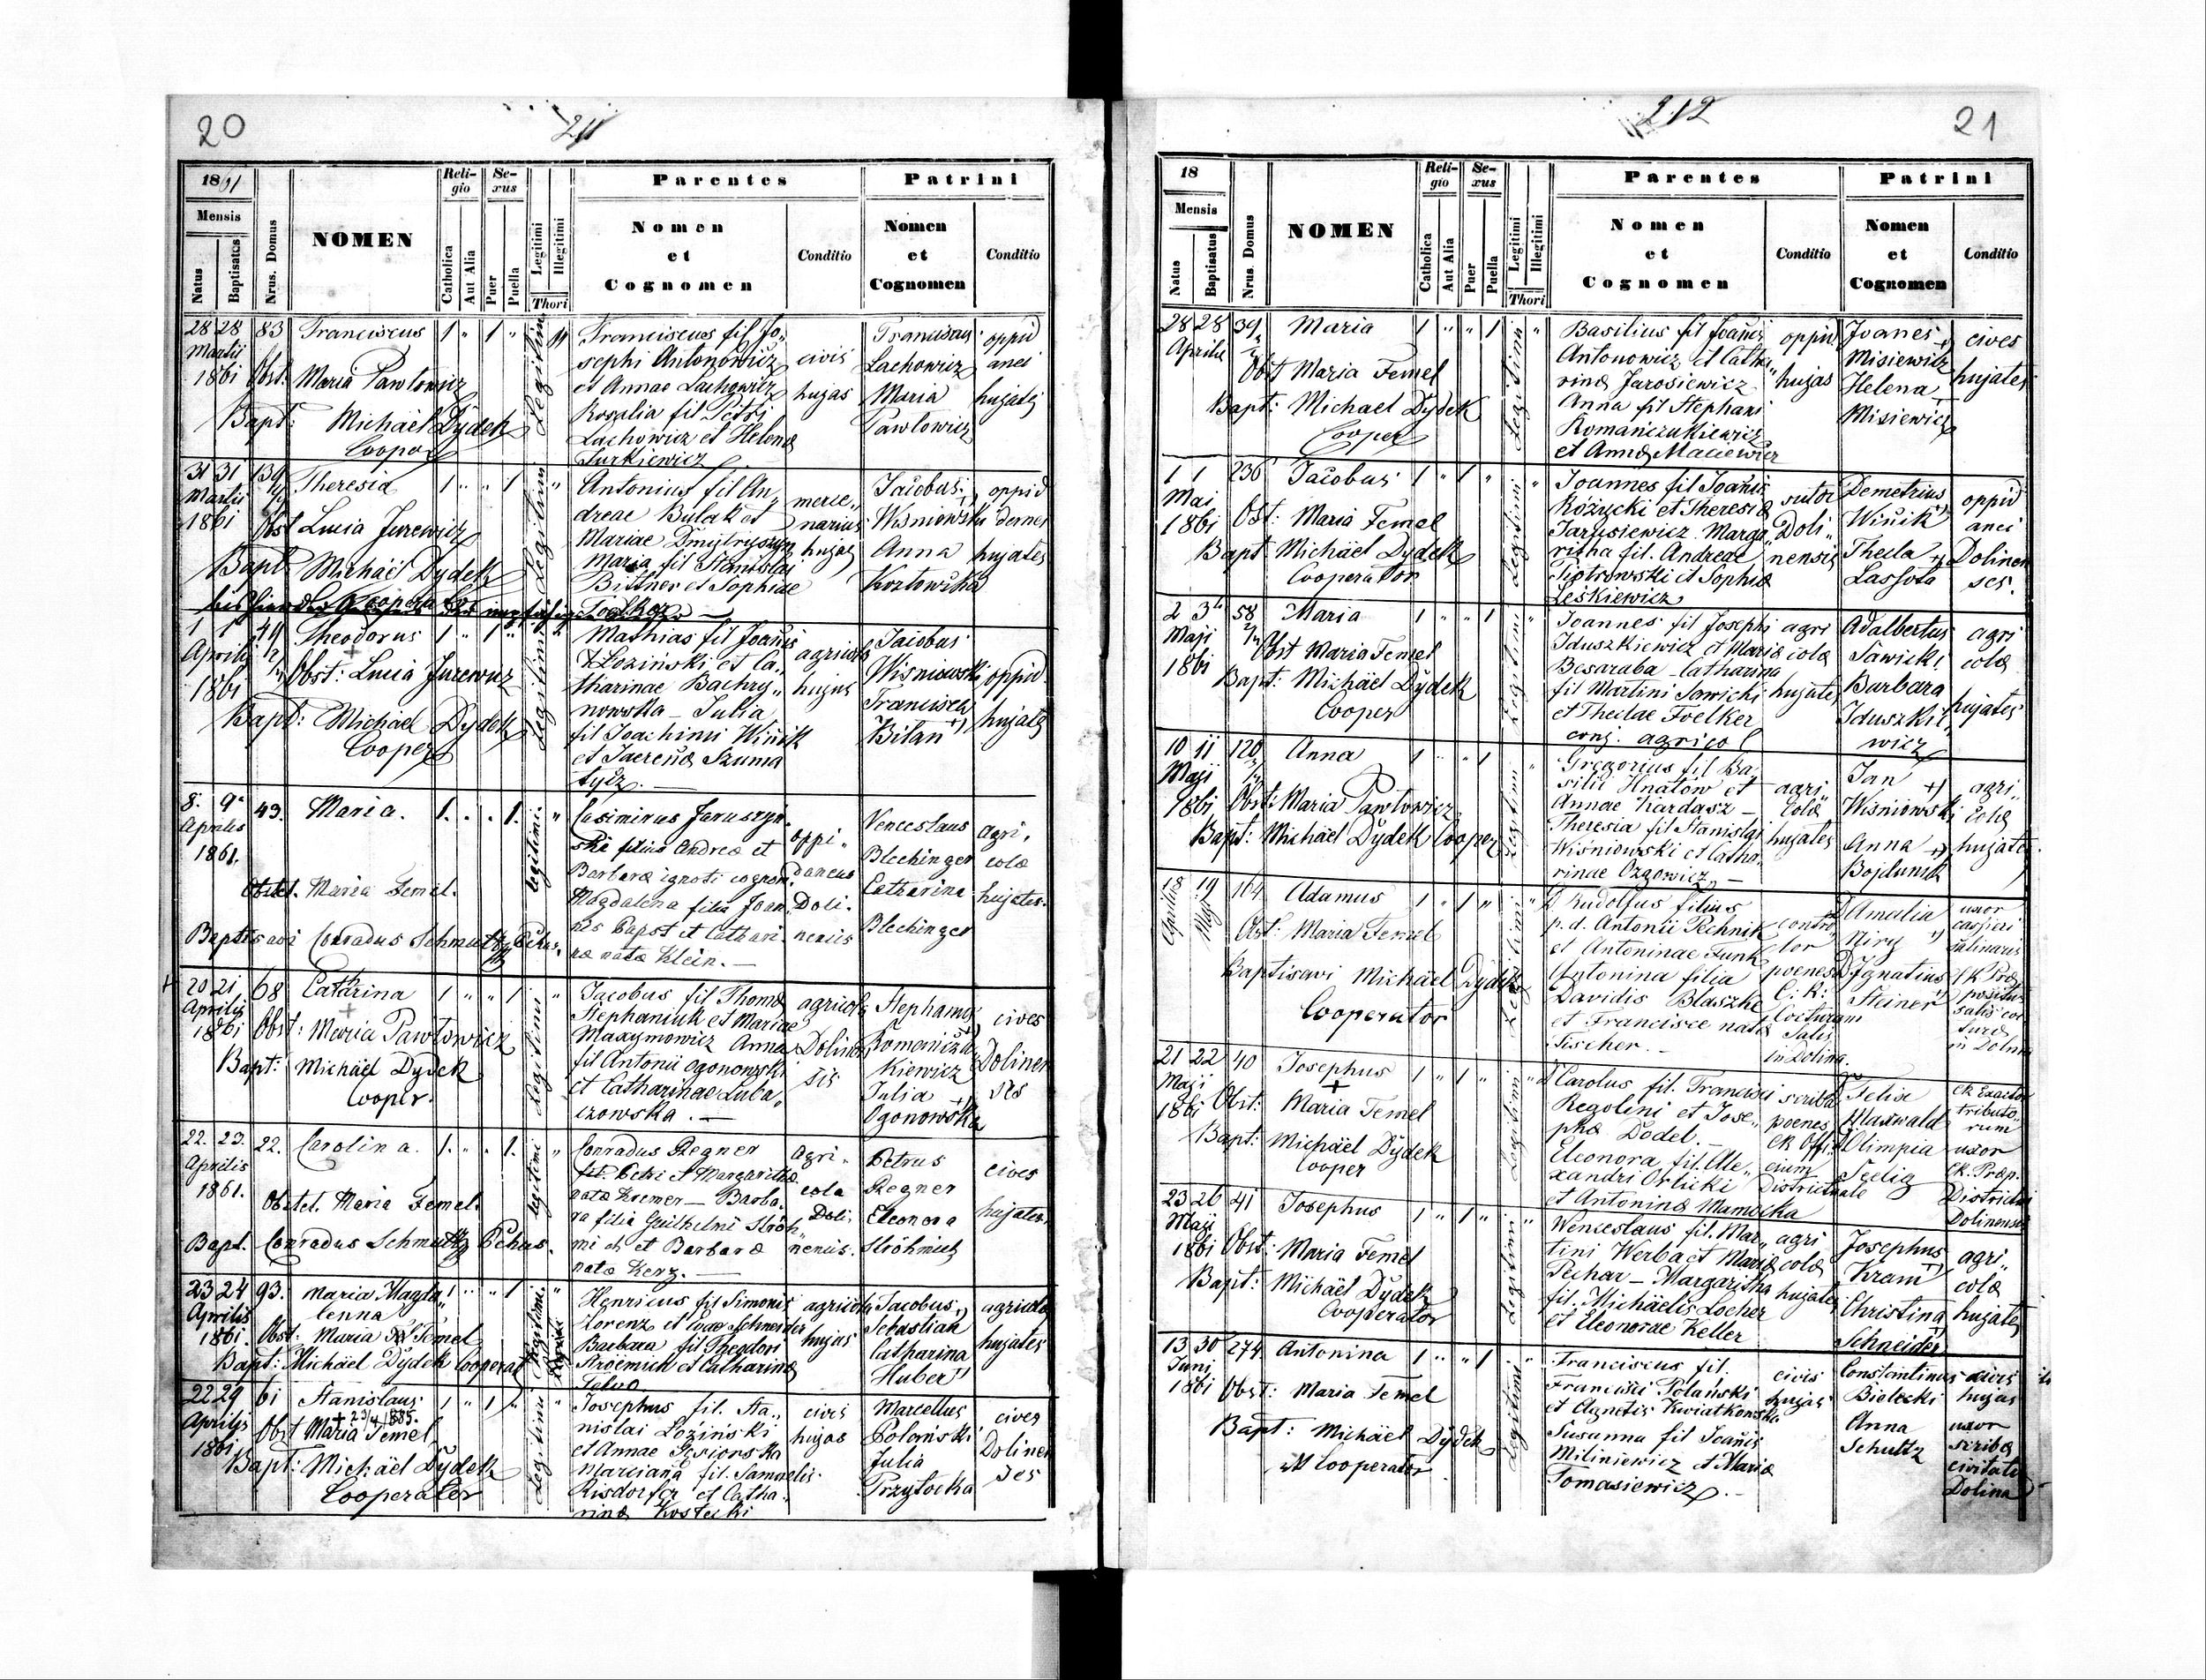 20
211
1861
Mensis
Natus
Baptisatus
Nrus. Domus
NOMEN
Religio
Catholica
Aut Alia
Sexus
Puer
Puella
Legitimi
Illegitimi
Thori
Parentes
Nomen
et
Cognomen
Conditio
Patrini
Nomen
et
Cognomen
Conditio
28 28 83 Franciscus 1 " 1 "
Martii
1861 Obst: Maria Pawlowicz
Bapt: Michäel Dydek
Cooper
Legitimi
Franciscus fil Jo„
sephi Antonowicz
et Annae Lachowicz
Rosalia fil Petri
Lachowicz et Helenæ
Turkiewicz
civis
hujas
Franciscus
Lachowicz
Maria
Pawlowicz
oppid
anei
hujates
31 31 139 Theresia 1 " " 1
Martii
1861 Obst Lucia Jurewicz
Bapt Michäel Dydek
Cooperator
Legitimi
Antonius fil An„
dreae Bulak et
Mariae Dmytryszyn
Maria fil Stanislai
Bittner et Sophiae
Foelker
merce„
narius
hujas
Jacobus
Wisniowski
Anna
Kozłowska
oppid
hujates
1 1 Theodorus 1 " 1 "
Aprilis
1861 Obst: Lucia Jurewicz
Bapt: Michäel Dydek
Cooper
Legitimi
Mathias fil Joañis
Łoziński et Ca„
tharinae Bachry„
nowska — Julia
fil Joachimi Wiñik
et
agricola
hujus
Jacobus
Wisniowski
Francisca
Bilan
oppid
hujates
8. 9. 43. Maria. 1. . . 1.
Aprilis
1861.
Obstet. Maria Femel.
Baptisavi Conradus Schmutz
legitimi.
Casimirus Jaruszyn„
ski filius Andreæ et
Barbaræ ignoti cognom.
Magdalena filia Joan„
nis Papst et Cathari„
næ natæ Klein. —
oppi„
daneus
Doli„
nensis
Venceslaus
Blechinger
Catharina
Blechinger
agri„
colæ
hujates.
20 21 68 Catarina 1 " " 1
Aprilis
1861 Obst: Maria Pawłowicz
Bapt: Michäel Dydek
Cooper.
Legitimi
Jacobus fil Thomæ
Stephaniuk et Mariae
Maxymowicz Anna
fil Antonii Ogonowski
et Catharinae Luba„
czowska. —
agricola
Dolinen
sis
Stephanus
Kiewicz
Julia
Ogonowska
cives
Dolinen
ses
22. 23. 22. Carolina. 1. " . 1.
Aprilis
1861.
Obstet. Maria Femel.
Bapt. Conradus Schmutz
legitimi
Conradus Regner
fil. Petri et Margarithæ
natæ Kremer — Barba„
ra filia Guilhelmi Ströh„
mich et Barbaræ
natæ Kerz. —
agri„
cola
Doli„
nensis.
Petrus
Regner
Eleonora
Ströhmich
cives
hujates.
23 24 93. Maria Magda„ 1 " " 1
Aprilis lenna
1861. Obst: Maria Femel
Bapt: Michäel Dydek Cooperat
Legitimi
Henricus fil Simonis
Lorenz et Evae Schneider
Barbara fil Theodori
Ströemich et Catharina
agricola
hujas
Jacobus
Sebastian
Catharina
Huber
agricola
hujates
22 29 61 Stanislaus 1 " 1 "
Aprilis + 23/4 1885.
1861 Obst Maria Femel
Bapt: Michäel Dydek
Cooperator
Legitimi
Josephus fil. Sta„
nislai Łoziński
et Annae
Marciana fil. Samuelis
Risdorfer et Catha„
rinæ Kostecki
civis
hujas
Marcellus
Polonski
Julia
Przytocka
cives
Dolinen
ses
212
21
18
Mensis
Natus
Baptisatus
Nrus. Domus
NOMEN
Religio
Catholica
Aut Alia
Sexus
Puer
Puella
Legitimi
Illegitimi
Thori
Parentes
Nomen
et
Cognomen
Conditio
Patrini
Nomen
et
Cognomen
Conditio
28 28 39 Maria 1 " " 1
Aprilis
Obst Maria Femel
Bapt: Michael Dydek
Cooper
Legitimi
Basilius fil Joañis
Antonowicz et Catha„
rinæ Jarosiewicz
Anna fil Stephani
Romańczukiewicz
et Annæ Maciewicz
oppid
hujas
Joanes
Misiewicz
Helena
Misiewicz
cives
hujates
1 1 236 Jacobus 1 " 1 "
Mai
1861 Obst: Maria Femel
Bapt Michäel Dydek
Cooperator
Legitimi
Joannes fil Joañis
Różycki et Theresiæ
Jarusiewicz. Marga„
ritha fil. Andreae
Piotrowski et Sophiæ
Leskiewicz
sutor
Doli„
nensis
Demetrius
Wiñik
Thecla
Lassota
oppid
anei
Dolinen
ses.
2 3 58 Maria 1 " " 1
Maji
1861 Obst Maria Femel
Bapt: Michäel Dydek
Cooper
Legitimi
Joannes fil Josephi
Iduszkiewicz et Mariæ
Besaraba Catharina
fil Martini Sawicki
et Theclae Foelker
conj. agricol
agri
colæ
hujates
Adalbertus
Sawicki
Barbara
Iduszkie
wicz
agri
colæ
hujates
10 11 120 Anna 1 " " 1
Maji
1861 Obst: Maria Pawłowicz
Bapt: Michäel Dydek Cooper
Legitimi
Gregorius fil Ba„
silii Hnatow et
Annae Hardasz —
Theresia fil Stanislai
Wiśniowski et Catha„
rinae Ozgowicz —
agri„
colæ
hujates
Jan
Wisniowski
Anna
Bojdunik
agri„
colæ
hujates.
18 19 164 Adamus 1 " 1 "
Aprilis Maji
Obst: Maria Femel
Baptisavi Michäel Dydek
Cooperator
Legitimi
Rudolfus filius
p. d. Antonii Pechnik
et Antoninae Funk
Antonina filia
Davidis Blaszke
et Francisce natæ
Fischer. —
contro„
lor
poenes
C. R.
Cocturam
Salis
in Dolina.
Amalia
Niry
Ignatius
Steiner
uxor
salinaris
in Dolina
21 22 40 Josephus 1 " 1 "
Maji
1861 Obst: Maria Femel
Bapt: Michäel Dydek
Cooper
Legitimi
Carolus fil. Francisci
Regolini et Jose„
phæ Dodel. —
Eleonora fil. Ale„
xandri Orlicki
et Antoninæ Mamecka
scriba
poenes
CK Offi„
cium
Districtuale
Felix
Maxwald
Olimpia
Seelig
CK Exactor
tributo
rum
uxor
CK. Præp.
Districtus
Dolinensis
23 26 41 Josephus 1 " 1 "
Maji
1861 Obst: Maria Femel
Bapt: Michäel Dydek
Cooperator
Legitimi
Wenceslaus fil. Mar„
tini Werba et Mariæ
Pechar — Margaritha
fil. Michäelis Locher
et Eleonorae Keller
agri
colæ
hujates
Josephus
Kram
Christina
Schneider
agri„
colæ
hujates
13 30 274 Antonina 1 " " 1
Juni
1861 Obst: Maria Femel
Bapt: Michäel Dydek
Cooperator
Legitimi
Franciscus fil.
Francisci Polański
et Agnetis Kwiatkowska
Susanna fil Joañis
Miliniewicz et Mariæ
Tomasiewicz. —
civis
hujas
Constantinus
Bielecki
Anna
Schultz
civis
hujas
uxor
scribæ
civitatis
Dolina